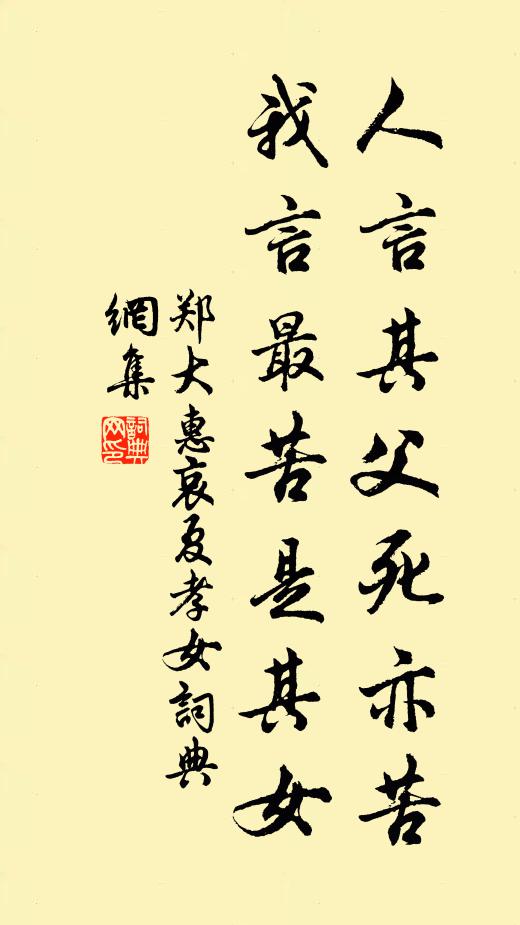 人言其父死亦苦
我言最苦是其女
郑大惠哀夏孝女詞典
網集
詞典網印